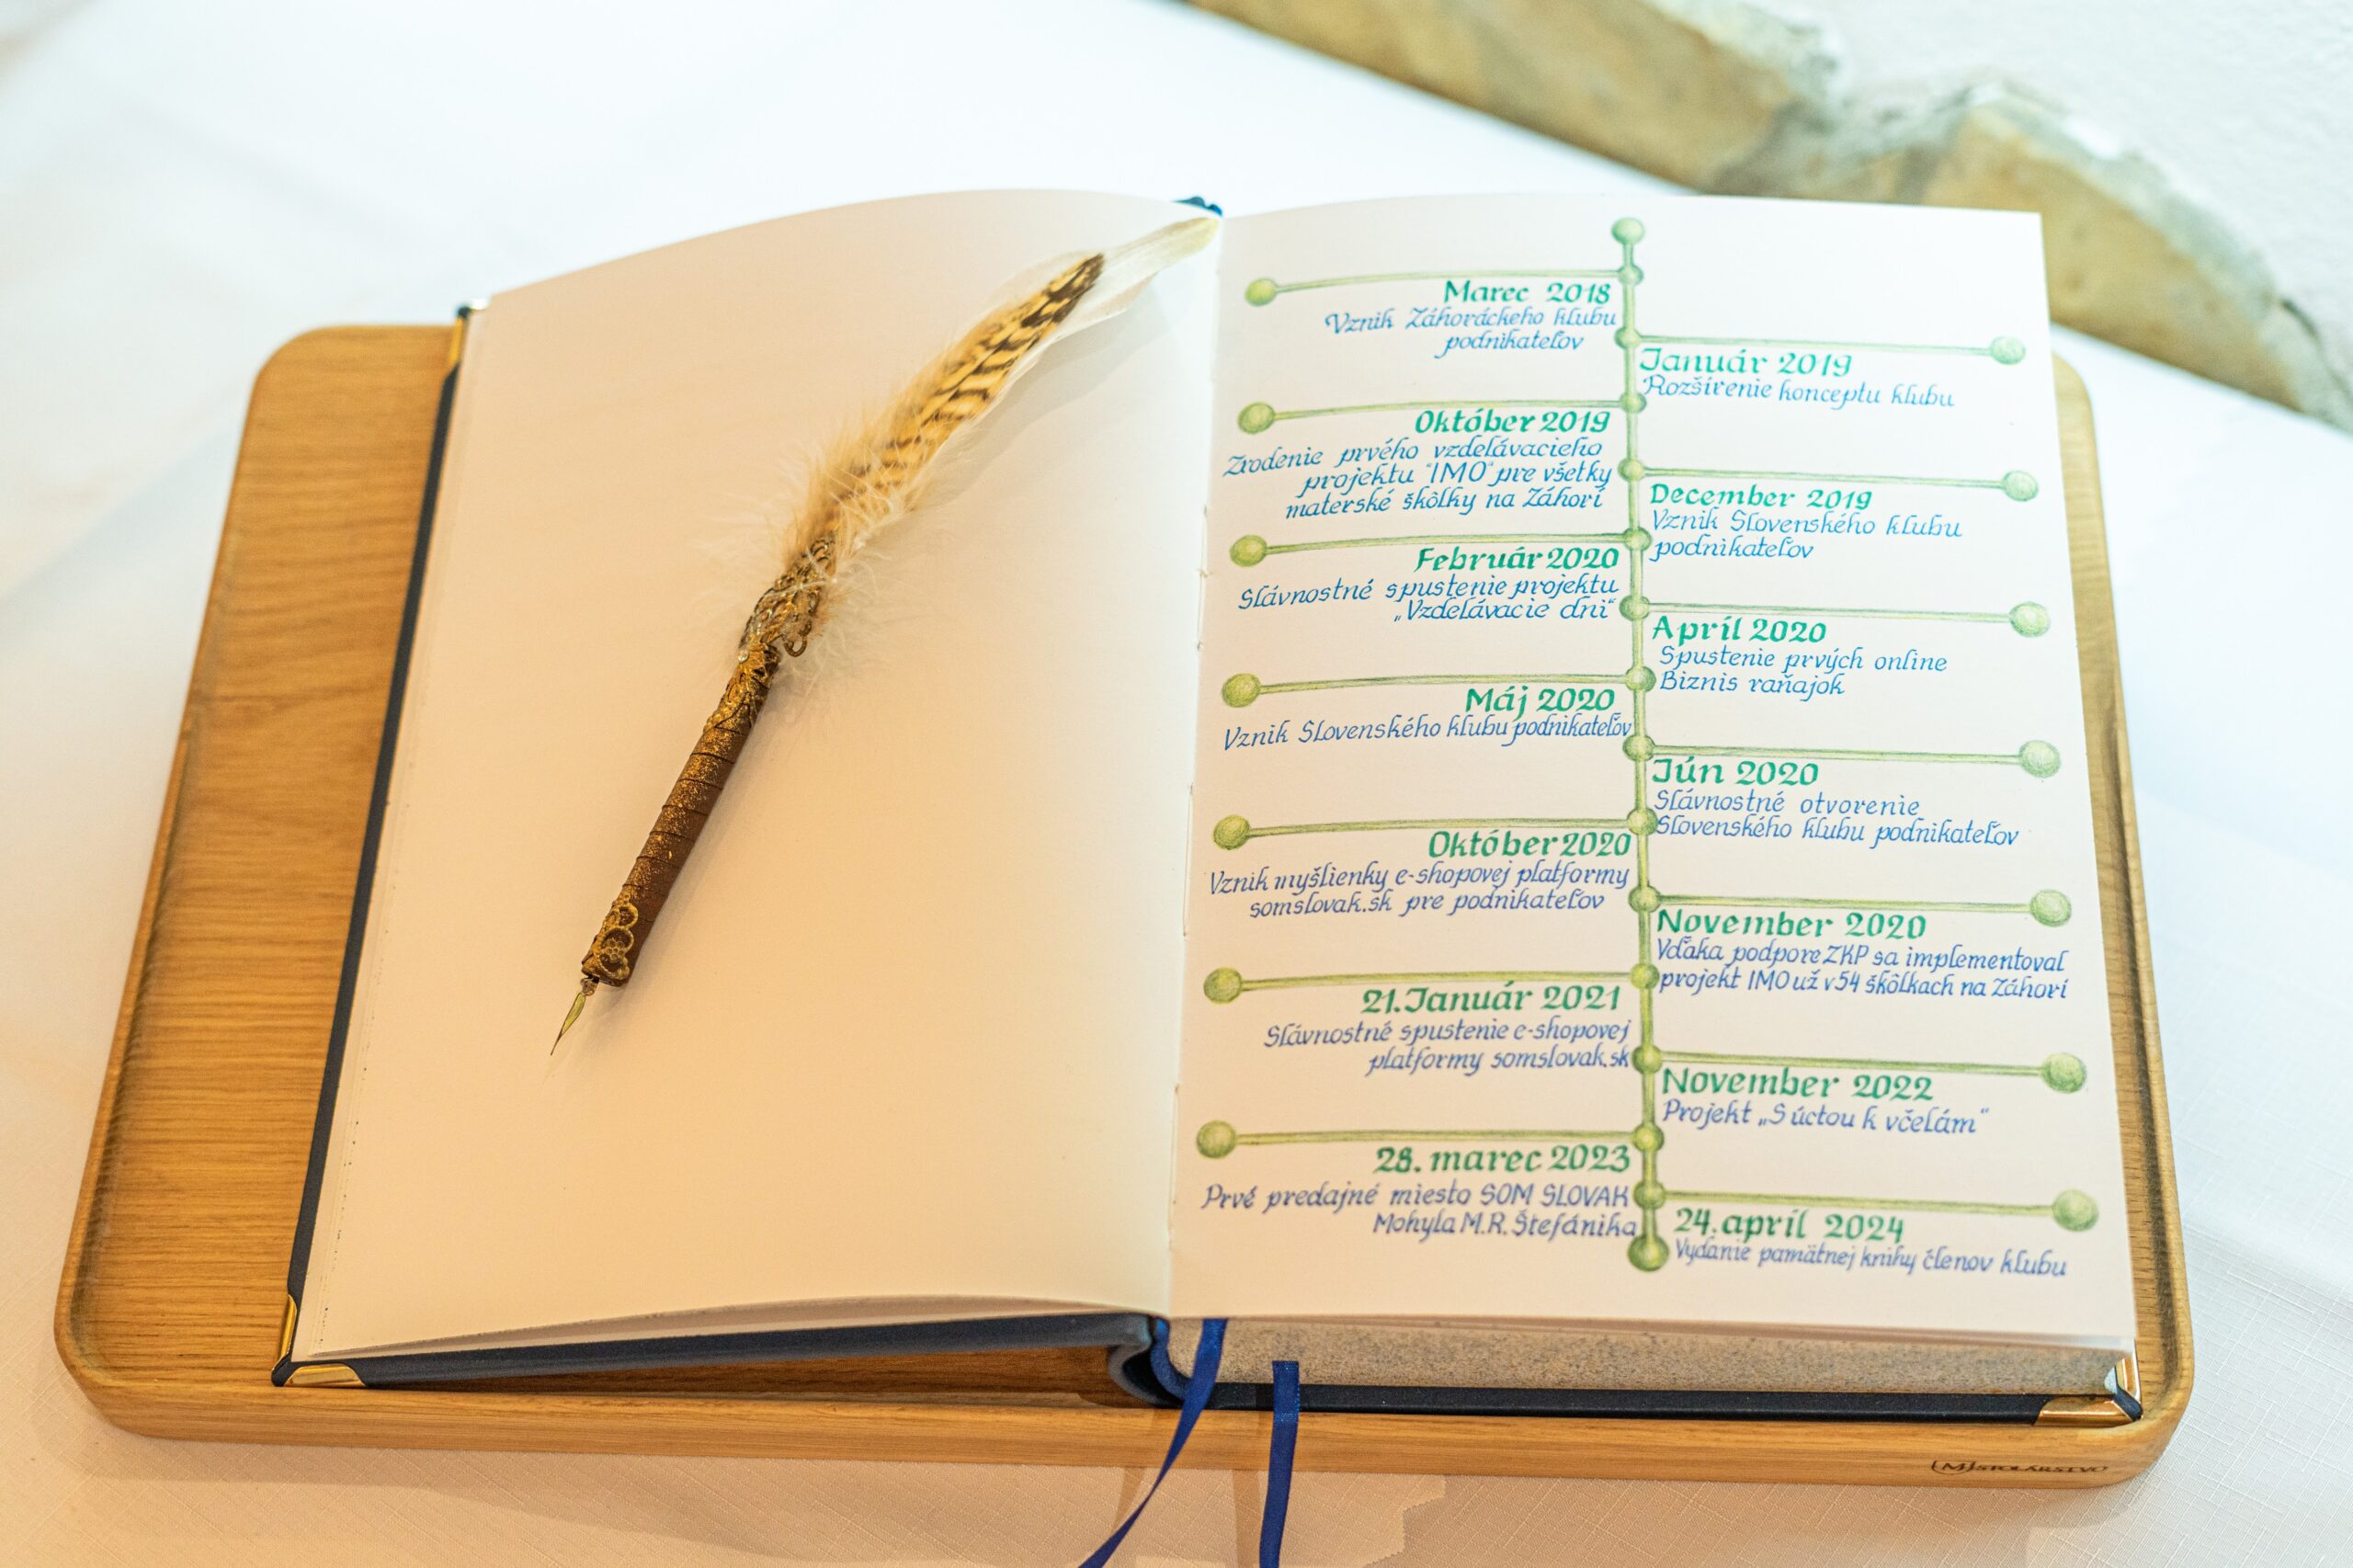 Marec 2018
Vznik Záhoráckeho klubu
podnikateľov
Január 2019
Rozšírenie konceptu klubu
Október 2019
Zrodenie prvého vzdelávacieho
projektu "IMO" pre všetky
materské škôlky na Záhorí
December 2019
Vznik Slovenského klubu
podnikateľov
Február 2020
Slávnostné spustenie projektu
„Vzdelávacie dni“
Apríl 2020
Spustenie prvých online
Biznis raňajok
Máj 2020
Vznik Slovenského klubu podnikateľov
Jún 2020
Slávnostné otvorenie
Slovenského klubu podnikateľov
Október 2020
Vznik myšlienky e-shopovej platformy
somslovak.sk pre podnikateľov
November 2020
Vďaka podpore ZKP sa implementoval
projekt IMO už v 54 škôlkach na Záhorí
21. Január 2021
Slávnostné spustenie e-shopovej
platformy somslovak.sk
November 2022
Projekt „S úctou k včelám“
28. marec 2023
Prvé predajné miesto SOM SLOVAK
Mohyla M.R. Štefánika
24. apríl 2024
Vydanie pamätnej knihy členov klubu
(M)STOLÁRSTVO